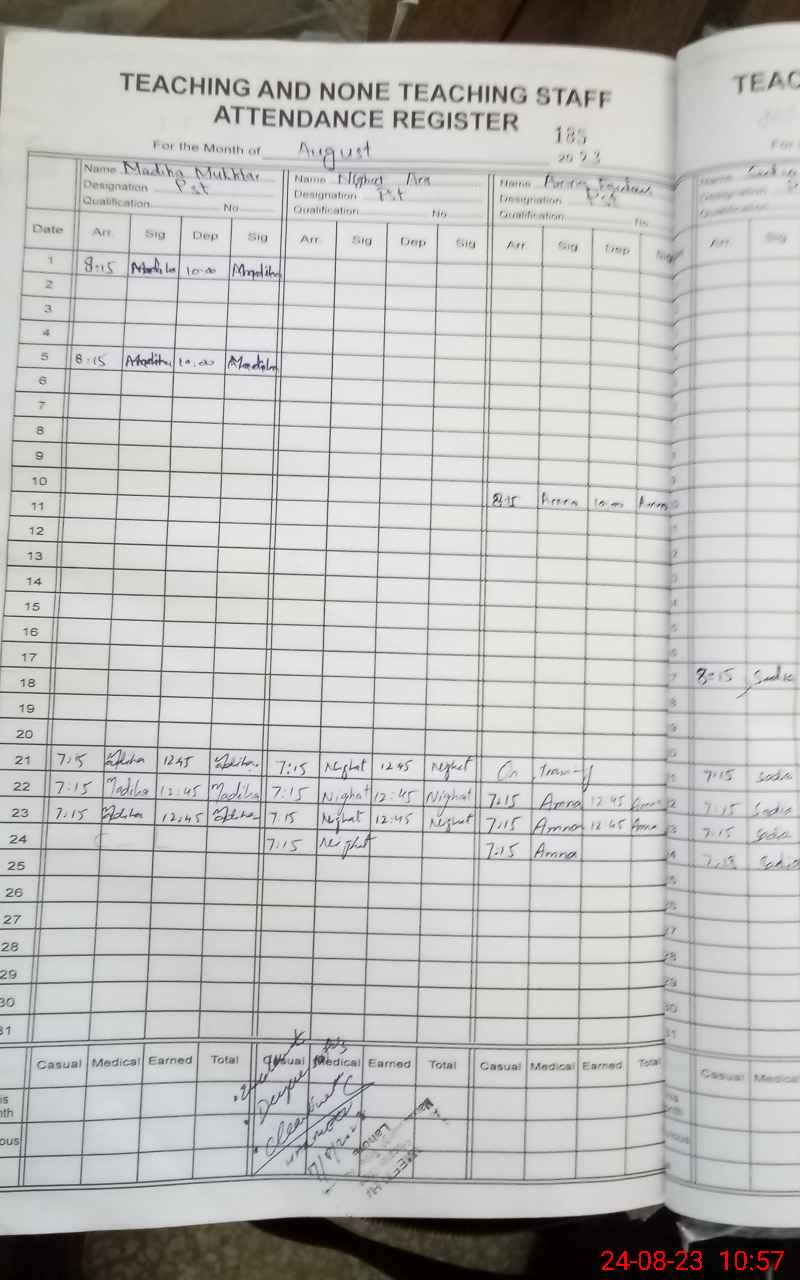 TEACHING AND NONE TEACHING STAFF
ATTENDANCE REGISTER
185
For the Month of August 2023
Name Madiha Mukhtar Name Nighat Ara Name Amna
Designation Pst Designation Pst Designation Pst
Qualification No Qualification No Qualification No
Date Arr. Sig Dep Sig Arr. Sig Dep Sig Arr. Sig Dep
1 8:15 Madiha 10:00 Madiha
2
3
4
5 8:15 Madiha 10:00 Madiha
6
7
8
9
10
11 8:15 Amna 10:00 Amna
12
13
14
15
16
17
18
19
20
21 7:15 Madiha 1245 Madiha 7:15 Nighat 12 45 Nighat On
22 7:15 Madiha 12:45 Madiha 7:15 Nighat 12:45 Nighat 7:15 Amna 12 45 Amna
23 7:15 Madiha 12:45 Madiha 7:15 Nighat 12:45 Nighat 7:15 Amna 12 45 Amna
24 7:15 Nighat 7:15 Amna
25
26
27
28
29
30
31
Casual Medical Earned Total Casual Medical Earned Total Casual Medical Earned Total
TEAC
Arr. Sig
8:15 Sadia
7:15 Sadia
7:15 Sadia
7:15 Sadia
7:15 Sadia
Casual Medical
24-08-23 10:57